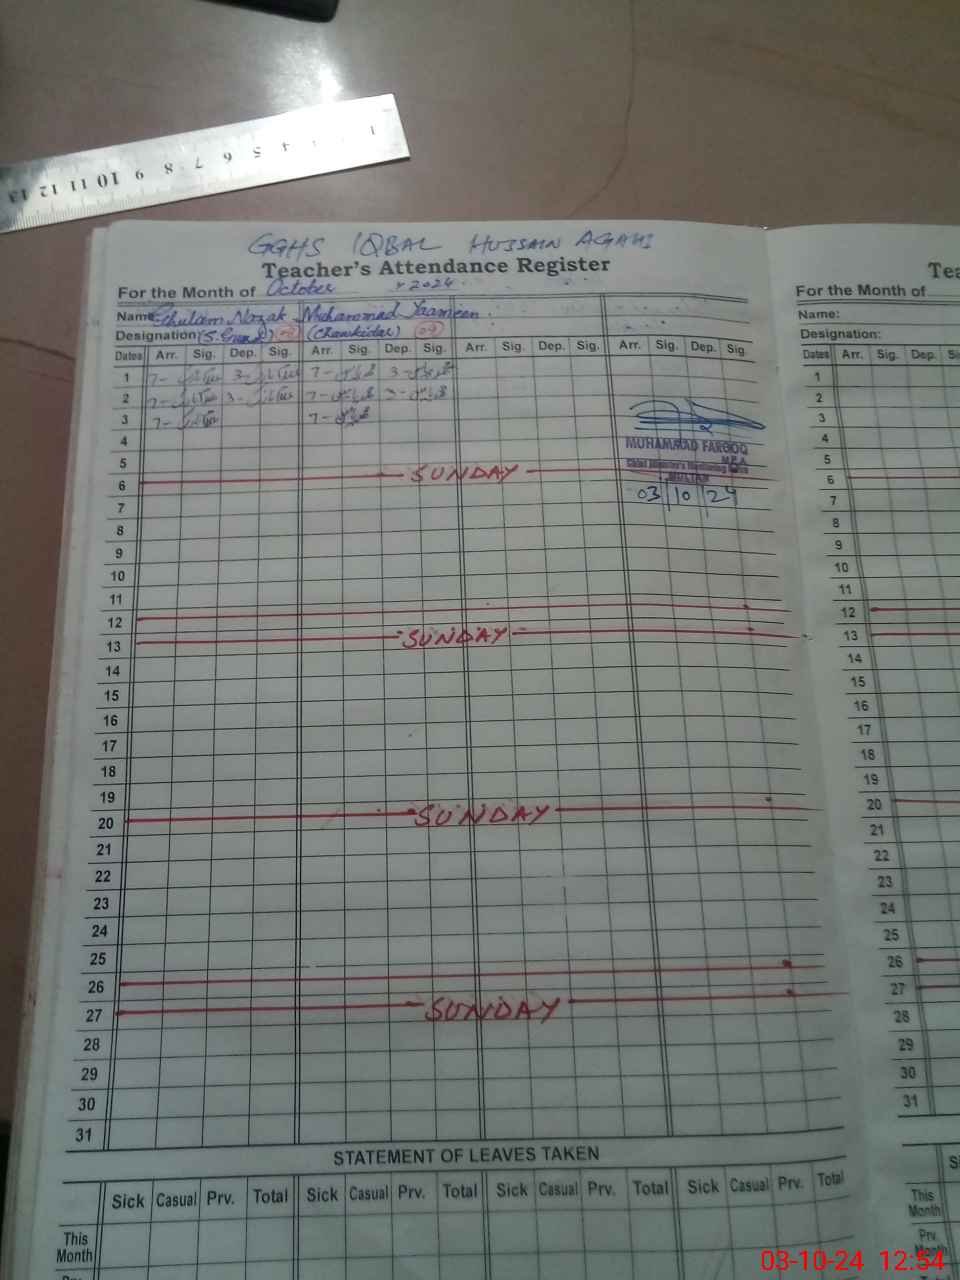 1 4 5 6 7 8 9 10 11 11 12 13
GGHS IQBAL HUSSAIN AGAHI
Teacher's Attendance Register
For the Month of October 2024
Name Muhammad Yaameen
Designation (Chawkidar) 09
Dates Arr. Sig. Dep. Sig. Arr. Sig. Dep. Sig. Arr. Sig. Dep. Sig. Arr. Sig. Dep. Sig.
1 7- 3- 7- 3-
2 7- 3- 7- 3-
3 7- 7-
4
MUHAMMAD FAROOQ
5
MEA
Chief Minister's Monitoring
MULTAN
6 SUNDAY
03/10/24
7
8
9
10
11
12
13 SUNDAY
14
15
16
17
18
19
20 SUNDAY
21
22
23
24
25
26
27 SUNDAY
28
29
30
31
STATEMENT OF LEAVES TAKEN
Sick Casual Prv. Total Sick Casual Prv. Total Sick Casual Prv. Total Sick Casual Prv. Total
This Month
Tea
For the Month of
Name:
Designation:
Dates Arr. Sig. Dep.
1
2
3
4
5
6
7
8
9
10
11
12
13
14
15
16
17
18
19
20
21
22
23
24
25
26
27
28
29
30
31
This Month
Prv. Month
03-10-24 12:54